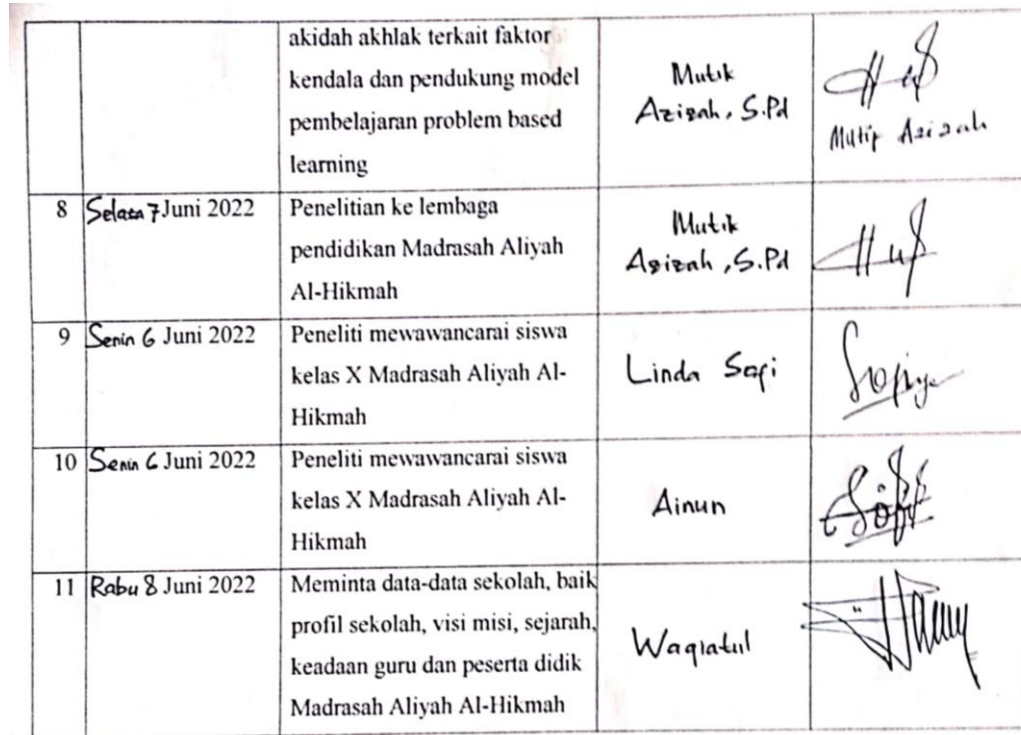 akidah akhlak terkait faktor
kendala dan pendukung model
pembelajaran problem based
learning
Mutik
Azizah, S.Pd
Mutik Azizah
8 Selasa 7 Juni 2022
Penelitian ke lembaga
pendidikan Madrasah Aliyah
Al-Hikmah
Mutik
Azizah, S.Pd
9 Senin 6 Juni 2022
Peneliti mewawancarai siswa
kelas X Madrasah Aliyah Al-
Hikmah
Linda Sapi
10 Senin 6 Juni 2022
Peneliti mewawancarai siswa
kelas X Madrasah Aliyah Al-
Hikmah
Ainun
11 Rabu 8 Juni 2022
Meminta data-data sekolah, baik
profil sekolah, visi misi, sejarah,
keadaan guru dan peserta didik
Madrasah Aliyah Al-Hikmah
Waqiatul